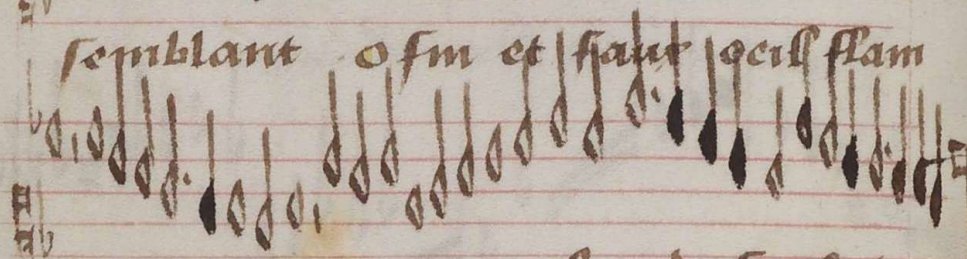 semblant o sin et haut ocill fflam